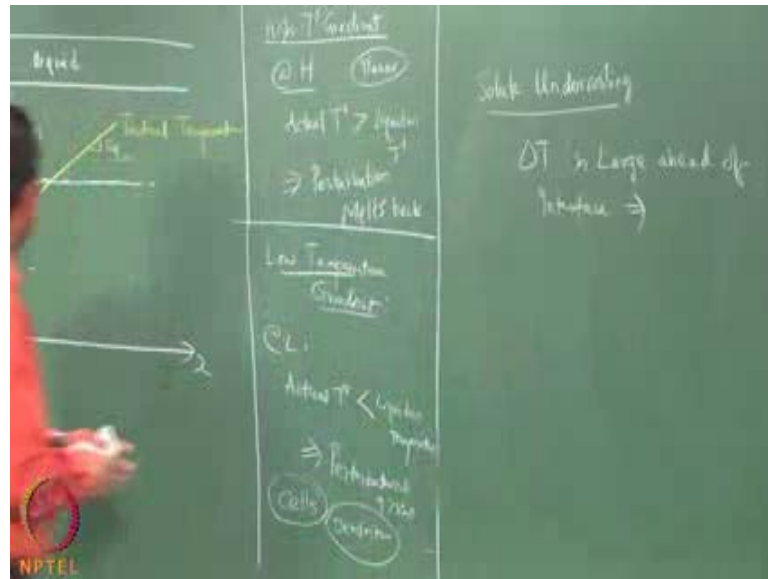 Liquid
Actual Temperature
High T^r Gradient
@ H Planar
Actual T^r > Liquidus
T^r
⇒ Perturbation
Melts back
Low Temperature
Gradient
@ L:
Actual T^r < Liquidus
Temperature
⇒ Perturbations
grow
Cells
Dendrites
Solute Undercooling
ΔT is Large ahead of
Interface ⇒
Z
NPTEL